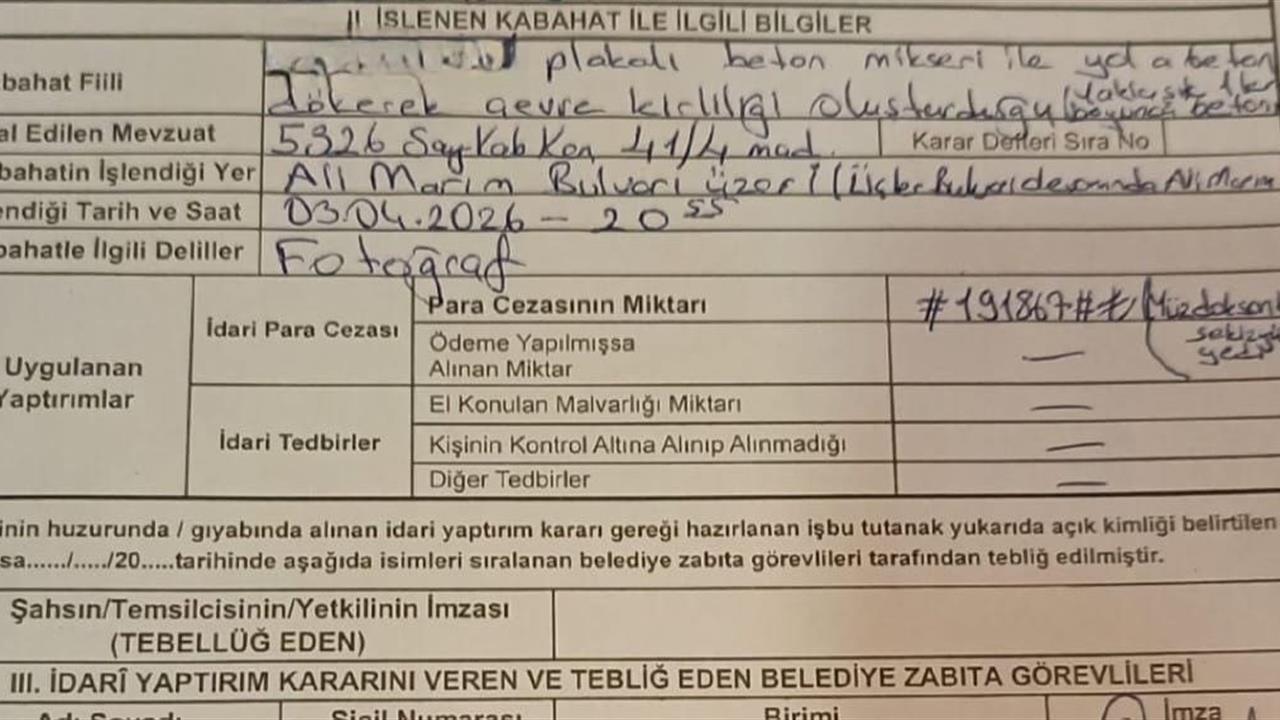 II İSLENEN KABAHAT İLE İLGİLİ BİLGİLER
bahat Fiili plakalı beton mikseri ile yola beton
dökerek çevre kirliliği oluşturduğu (Yaklaşık 1 km boyunca beton
al Edilen Mevzuat 5326 Say Kab Kan 41/4 mad. Karar Defteri Sıra No
bahatin İşlendiği Yer Ali Marım Bulvarı üzeri
endiği Tarih ve Saat 03.04.2026 - 20 55
bahatle İlgili Deliller Fotoğraf
Uygulanan Yaptırımlar
İdari Para Cezası
Para Cezasının Miktarı #191867#₺ (Yüzdoksan
sekizyüz
yedi
Ödeme Yapılmışsa
Alınan Miktar —
İdari Tedbirler
El Konulan Malvarlığı Miktarı —
Kişinin Kontrol Altına Alınıp Alınmadığı —
Diğer Tedbirler —
inin huzurunda / gıyabında alınan idari yaptırım kararı gereği hazırlanan işbu tutanak yukarıda açık kimliği belirtilen
sa....../...../20.....tarihinde aşağıda isimleri sıralanan belediye zabıta görevlileri tarafından tebliğ edilmiştir.
Şahsın/Temsilcisinin/Yetkilinin İmzası
(TEBELLÜĞ EDEN)
III. İDARÎ YAPTIRIM KARARINI VEREN VE TEBLİĞ EDEN BELEDİYE ZABITA GÖREVLİLERİ
Adı Soyadı Sicil Numarası Birimi İmza